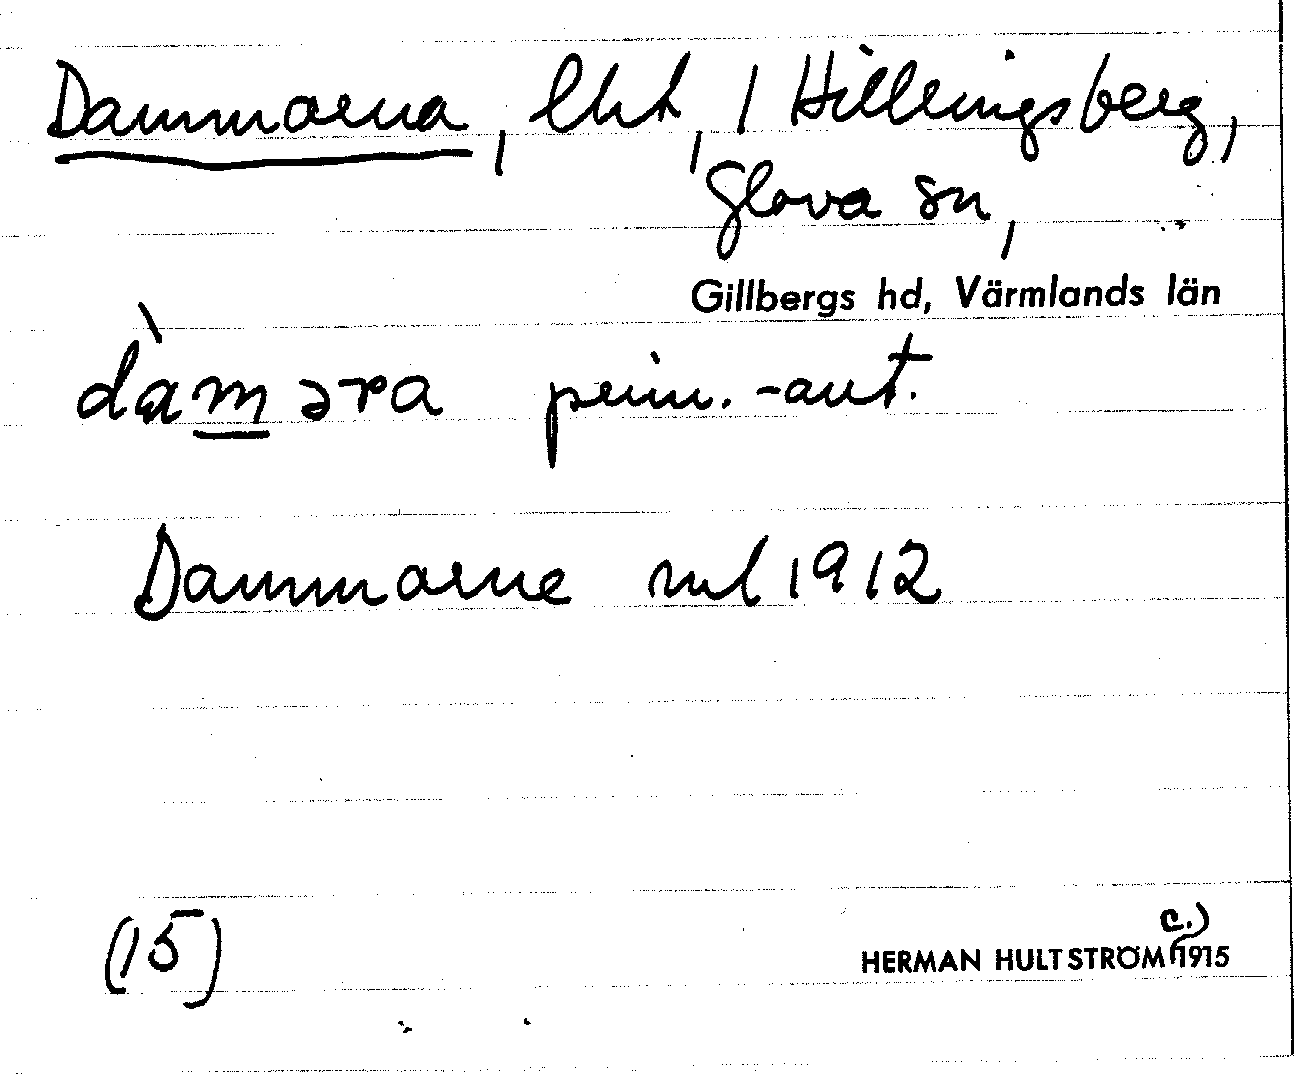 Dammarna, lht, 1 Hillringsberg,
Glava sn,
Gillbergs hd, Värmlands län
dàməra prim.-ant.
Dammarne ml 1912
(15)
c.)
HERMAN HULTSTRÖM (1915